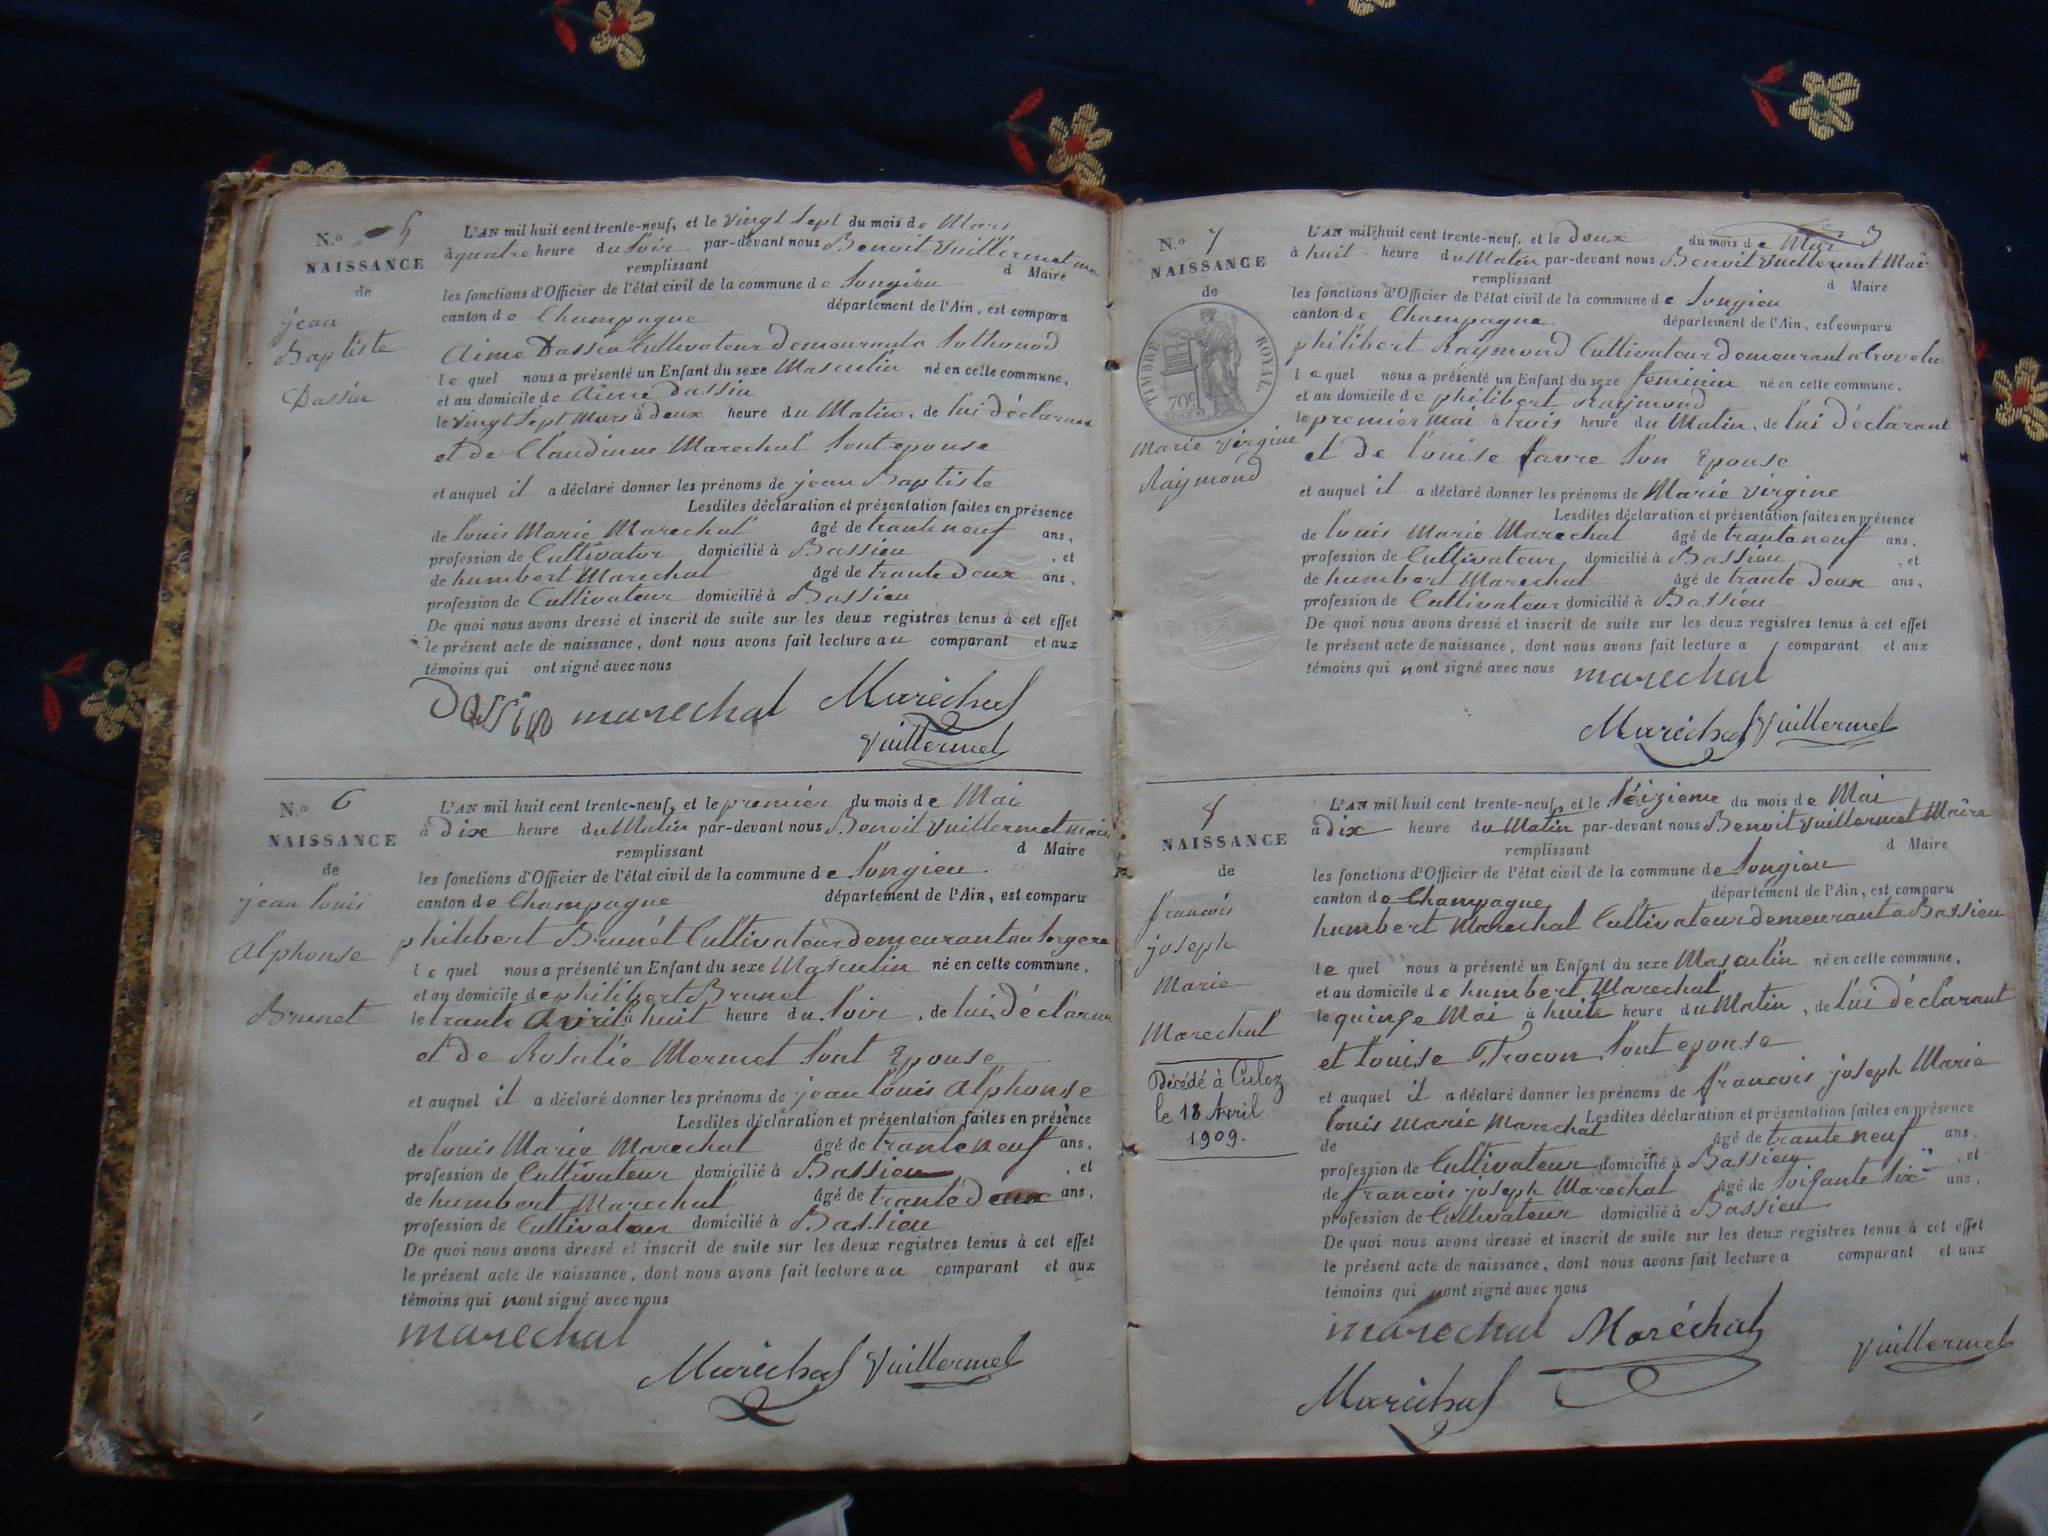 N.º 5
NAISSANCE
de
jean
Baptiste
Dassin
L'AN mil huit cent trente-neuf, et le vingt sept du mois de Mars
à quatre heure du soir par-devant nous Benoit Vuillermet
remplissant d Maire
les fonctions d'Officier de l'état civil de la commune de Songieu
canton de Champagne département de l'Ain, est comparu
Aime Dassin Cultivateur demeurant a Sothonod
le quel nous a présenté un Enfant du sexe Masculin né en cette commune,
et au domicile de Aime Dassin
le vingt Sept Mars à deux heure du Matin, de lui déclarant
et de Claudinne Marechal sont epouse
et auquel il a déclaré donner les prénoms de jean Baptiste
Lesdites déclaration et présentation faites en présence
de louis Marie Marechal âgé de trante neuf ans,
profession de Cultivator domicilié à Bassieu , et
de humbert Marechal âgé de trante deux ans,
profession de Cultivateur domicilié à Bassieu
De quoi nous avons dressé et inscrit de suite sur les deux registres tenus à cet effet
le présent acte de naissance, dont nous avons fait lecture au comparant et aux
témoins qui ont signé avec nous
Dassin marechal Maréchal
Vuillermet
N.º 6
NAISSANCE
de
jean louis
alphonse
Brunet
L'AN mil huit cent trente-neuf, et le premier du mois de Mai
à dix heure du Matin par-devant nous Benoit Vuillermet maire
remplissant d Maire
les fonctions d'Officier de l'état civil de la commune de Songieu
canton de Champagne département de l'Ain, est comparu
philibert Brunet Cultivateur demeurant au
le quel nous a présenté un Enfant du sexe Masculin né en cette commune,
et au domicile de philibert Brunet
le trante avril à huit heure du soir, de lui déclarant
et de Rosalie Mermet sont Epouse
et auquel il a déclaré donner les prénoms de jean louis alphonse
Lesdites déclaration et présentation faites en présence
de louis Marie Marechal âgé de trante neuf ans,
profession de Cultivateur domicilié à Bassieu , et
de humbert Marechal âgé de trante deux ans,
profession de Cultivateur domicilié à Bassieu
De quoi nous avons dressé et inscrit de suite sur les deux registres tenus à cet effet
le présent acte de naissance, dont nous avons fait lecture au comparant et aux
témoins qui nont signé avec nous
marechal
Maréchal Vuillermet
3
N.º 7
NAISSANCE
de
TIMBRE ROYAL.
70c
Marie virgine
Raymond
L'AN mil huit cent trente-neuf, et le deux du mois de Mai
à huit heure du Matin par-devant nous Benoit Vuillermet Mai
remplissant d Maire
les fonctions d'Officier de l'état civil de la commune de Songieu
canton de Champagne département de l'Ain, est comparu
philibert Raymond Cultivateur demeurant a
le quel nous a présenté un Enfant du sexe feminin né en cette commune,
et au domicile de philibert Raymond
le premier mai à trois heure du Matin, de lui déclarant
et de louise favre son Epouse
et auquel il a déclaré donner les prénoms de Marie virgine
Lesdites déclaration et présentation faites en présence
de louis Marie Marechal âgé de trante neuf ans,
profession de Cultivateur domicilié à Bassieu , et
de humbert Marechal âgé de trante deux ans,
profession de Cultivateur domicilié à Bassieu
De quoi nous avons dressé et inscrit de suite sur les deux registres tenus à cet effet
le présent acte de naissance, dont nous avons fait lecture a comparant et aux
témoins qui nont signé avec nous marechal
Maréchal Vuillermet
8
NAISSANCE
de
francois
joseph
Marie
Marechal
Décédé à Culoz
le 18 Avril
1909.
L'AN mil huit cent trente-neuf, et le séizieme du mois de Mai
à dix heure du Matin par-devant nous Benoit Vuillermet Maire
remplissant d Maire
les fonctions d'Officier de l'état civil de la commune de Songieu
canton de Champagne département de l'Ain, est comparu
humbert Marechal Cultivateur demeurant a Bassieu
le quel nous a présenté un Enfant du sexe Masculin né en cette commune,
et au domicile de humbert Marechal
le quinze Mai à huit heure du Matin, de lui déclarant
et louise Trocon sont epouse
et auquel il a déclaré donner les prénoms de francois joseph Marie
Lesdites déclaration et présentation faites en présence
de louis Marie Marechal âgé de trante neuf ans,
profession de Cultivateur domicilié à Bassieu , et
de francois joseph Marechal âgé de soisante six ans,
profession de Cultivateur domicilié à Bassieu
De quoi nous avons dressé et inscrit de suite sur les deux registres tenus à cet effet
le présent acte de naissance, dont nous avons fait lecture a comparant et aux
témoins qui nont signé avec nous
maréchal Maréchal
Vuillermet
Maréchal